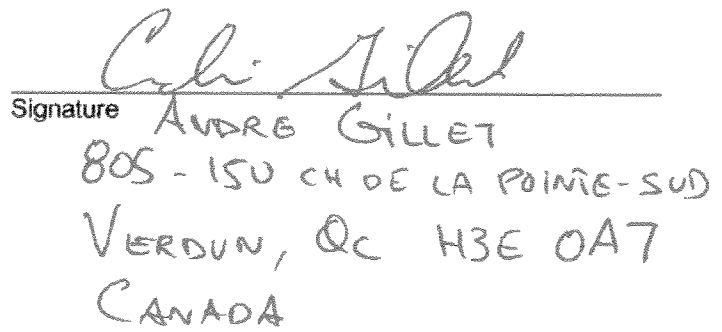 Signature
ANDRE GILLET
805 - 150 CH DE LA POINTE-SUD
VERDUN, Qc H3E 0A7
CANADA